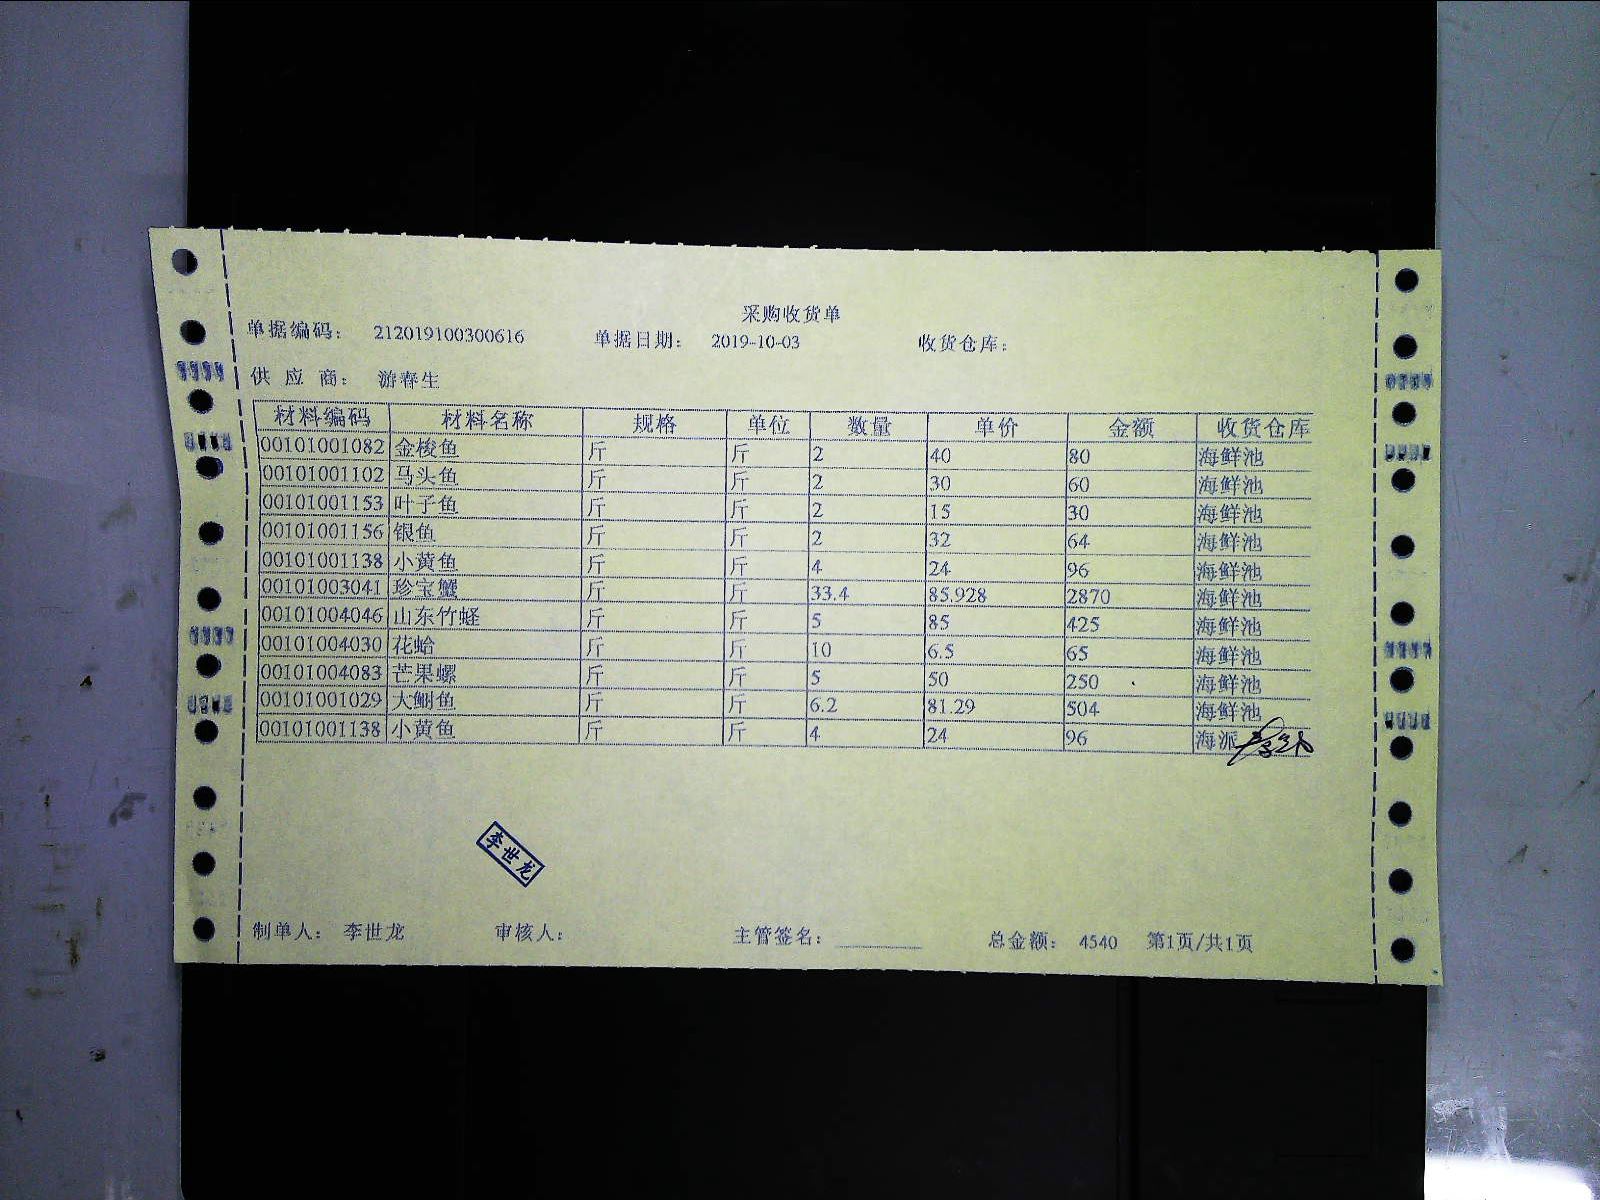 采购收货单
单据编码： 212019100300616 单据日期： 2019-10-03 收货仓库：
供 应 商： 游春生
材料编码 材料名称 规格 单位 数量 单价 金额 收货仓库
00101001082 金梭鱼 斤 斤 2 40 80 海鲜池
00101001102 马头鱼 斤 斤 2 30 60 海鲜池
00101001153 叶子鱼 斤 斤 2 15 30 海鲜池
00101001156 银鱼 斤 斤 2 32 64 海鲜池
00101001138 小黄鱼 斤 斤 4 24 96 海鲜池
00101003041 珍宝蟹 斤 斤 33.4 85.928 2870 海鲜池
00101004046 山东竹蛏 斤 斤 5 85 425 海鲜池
00101004030 花蛤 斤 斤 10 6.5 65 海鲜池
00101004083 芒果螺 斤 斤 5 50 250 海鲜池
00101001029 大鲷鱼 斤 斤 6.2 81.29 504 海鲜池
00101001138 小黄鱼 斤 斤 4 24 96 海派
李世龙
制单人： 李世龙 审核人： 主管签名： 总金额： 4540 第1页/共1页